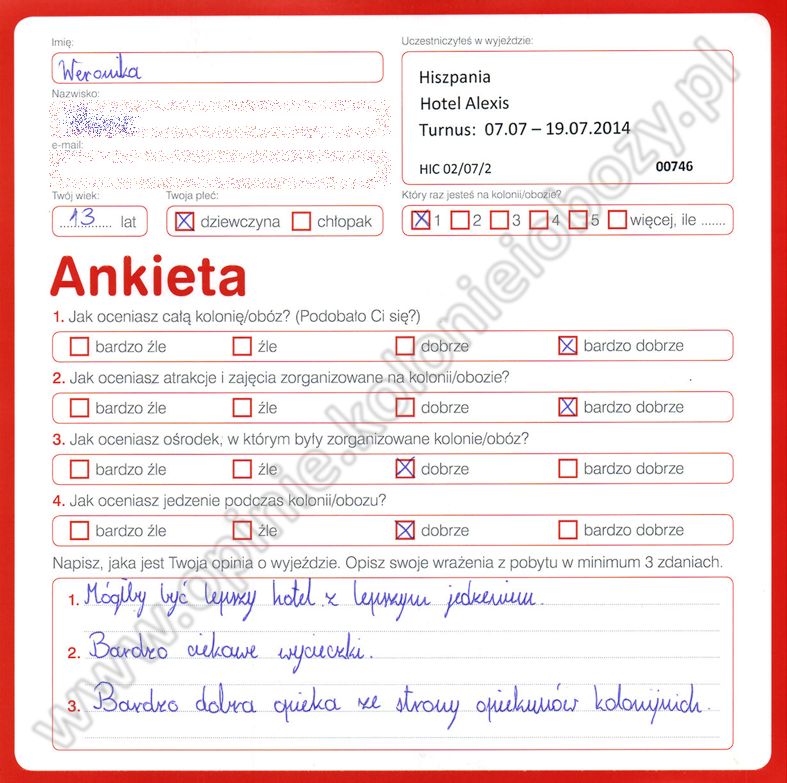 Imię:
Weronika
Nazwisko:
e-mail:
Twój wiek:
13 lat
Twoja płeć:
dziewczyna chłopak
Uczestniczyłeś w wyjeździe:
Hiszpania
Hotel Alexis
Turnus: 07.07 – 19.07.2014
HIC 02/07/2 00746
Który raz jesteś na kolonii/obozie?
1 2 3 4 5 więcej, ile .......
Ankieta
1. Jak oceniasz całą kolonię/obóz? (Podobało Ci się?)
bardzo źle źle dobrze bardzo dobrze
2. Jak oceniasz atrakcje i zajęcia zorganizowane na kolonii/obozie?
bardzo źle źle dobrze bardzo dobrze
3. Jak oceniasz ośrodek, w którym były zorganizowane kolonie/obóz?
bardzo źle źle dobrze bardzo dobrze
4. Jak oceniasz jedzenie podczas kolonii/obozu?
bardzo źle źle dobrze bardzo dobrze
Napisz, jaka jest Twoja opinia o wyjeździe. Opisz swoje wrażenia z pobytu w minimum 3 zdaniach.
1. Mógłby być lepszy hotel z lepszym jedzeniem.
2. Bardzo ciekawe wycieczki.
3. Bardzo dobra opieka ze strony opiekunów kolonijnich.
www.opinie.kolonieiobozy.pl